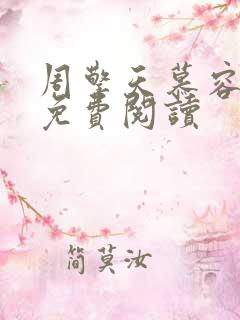 周擎天慕容
免費閱讀
簡莫汝